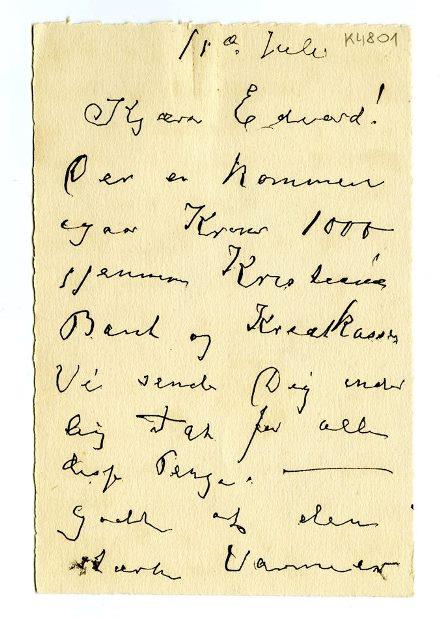 K4801
11e Juli
Kjære Edvard!
Der er kommen
igaar Kroner 1000
gjennem Kristiania
Bank og Kreditkasse
Vi sender Dig inder
lig Tak for alle
disse Penge. —
Godt at den
stærke Varme er